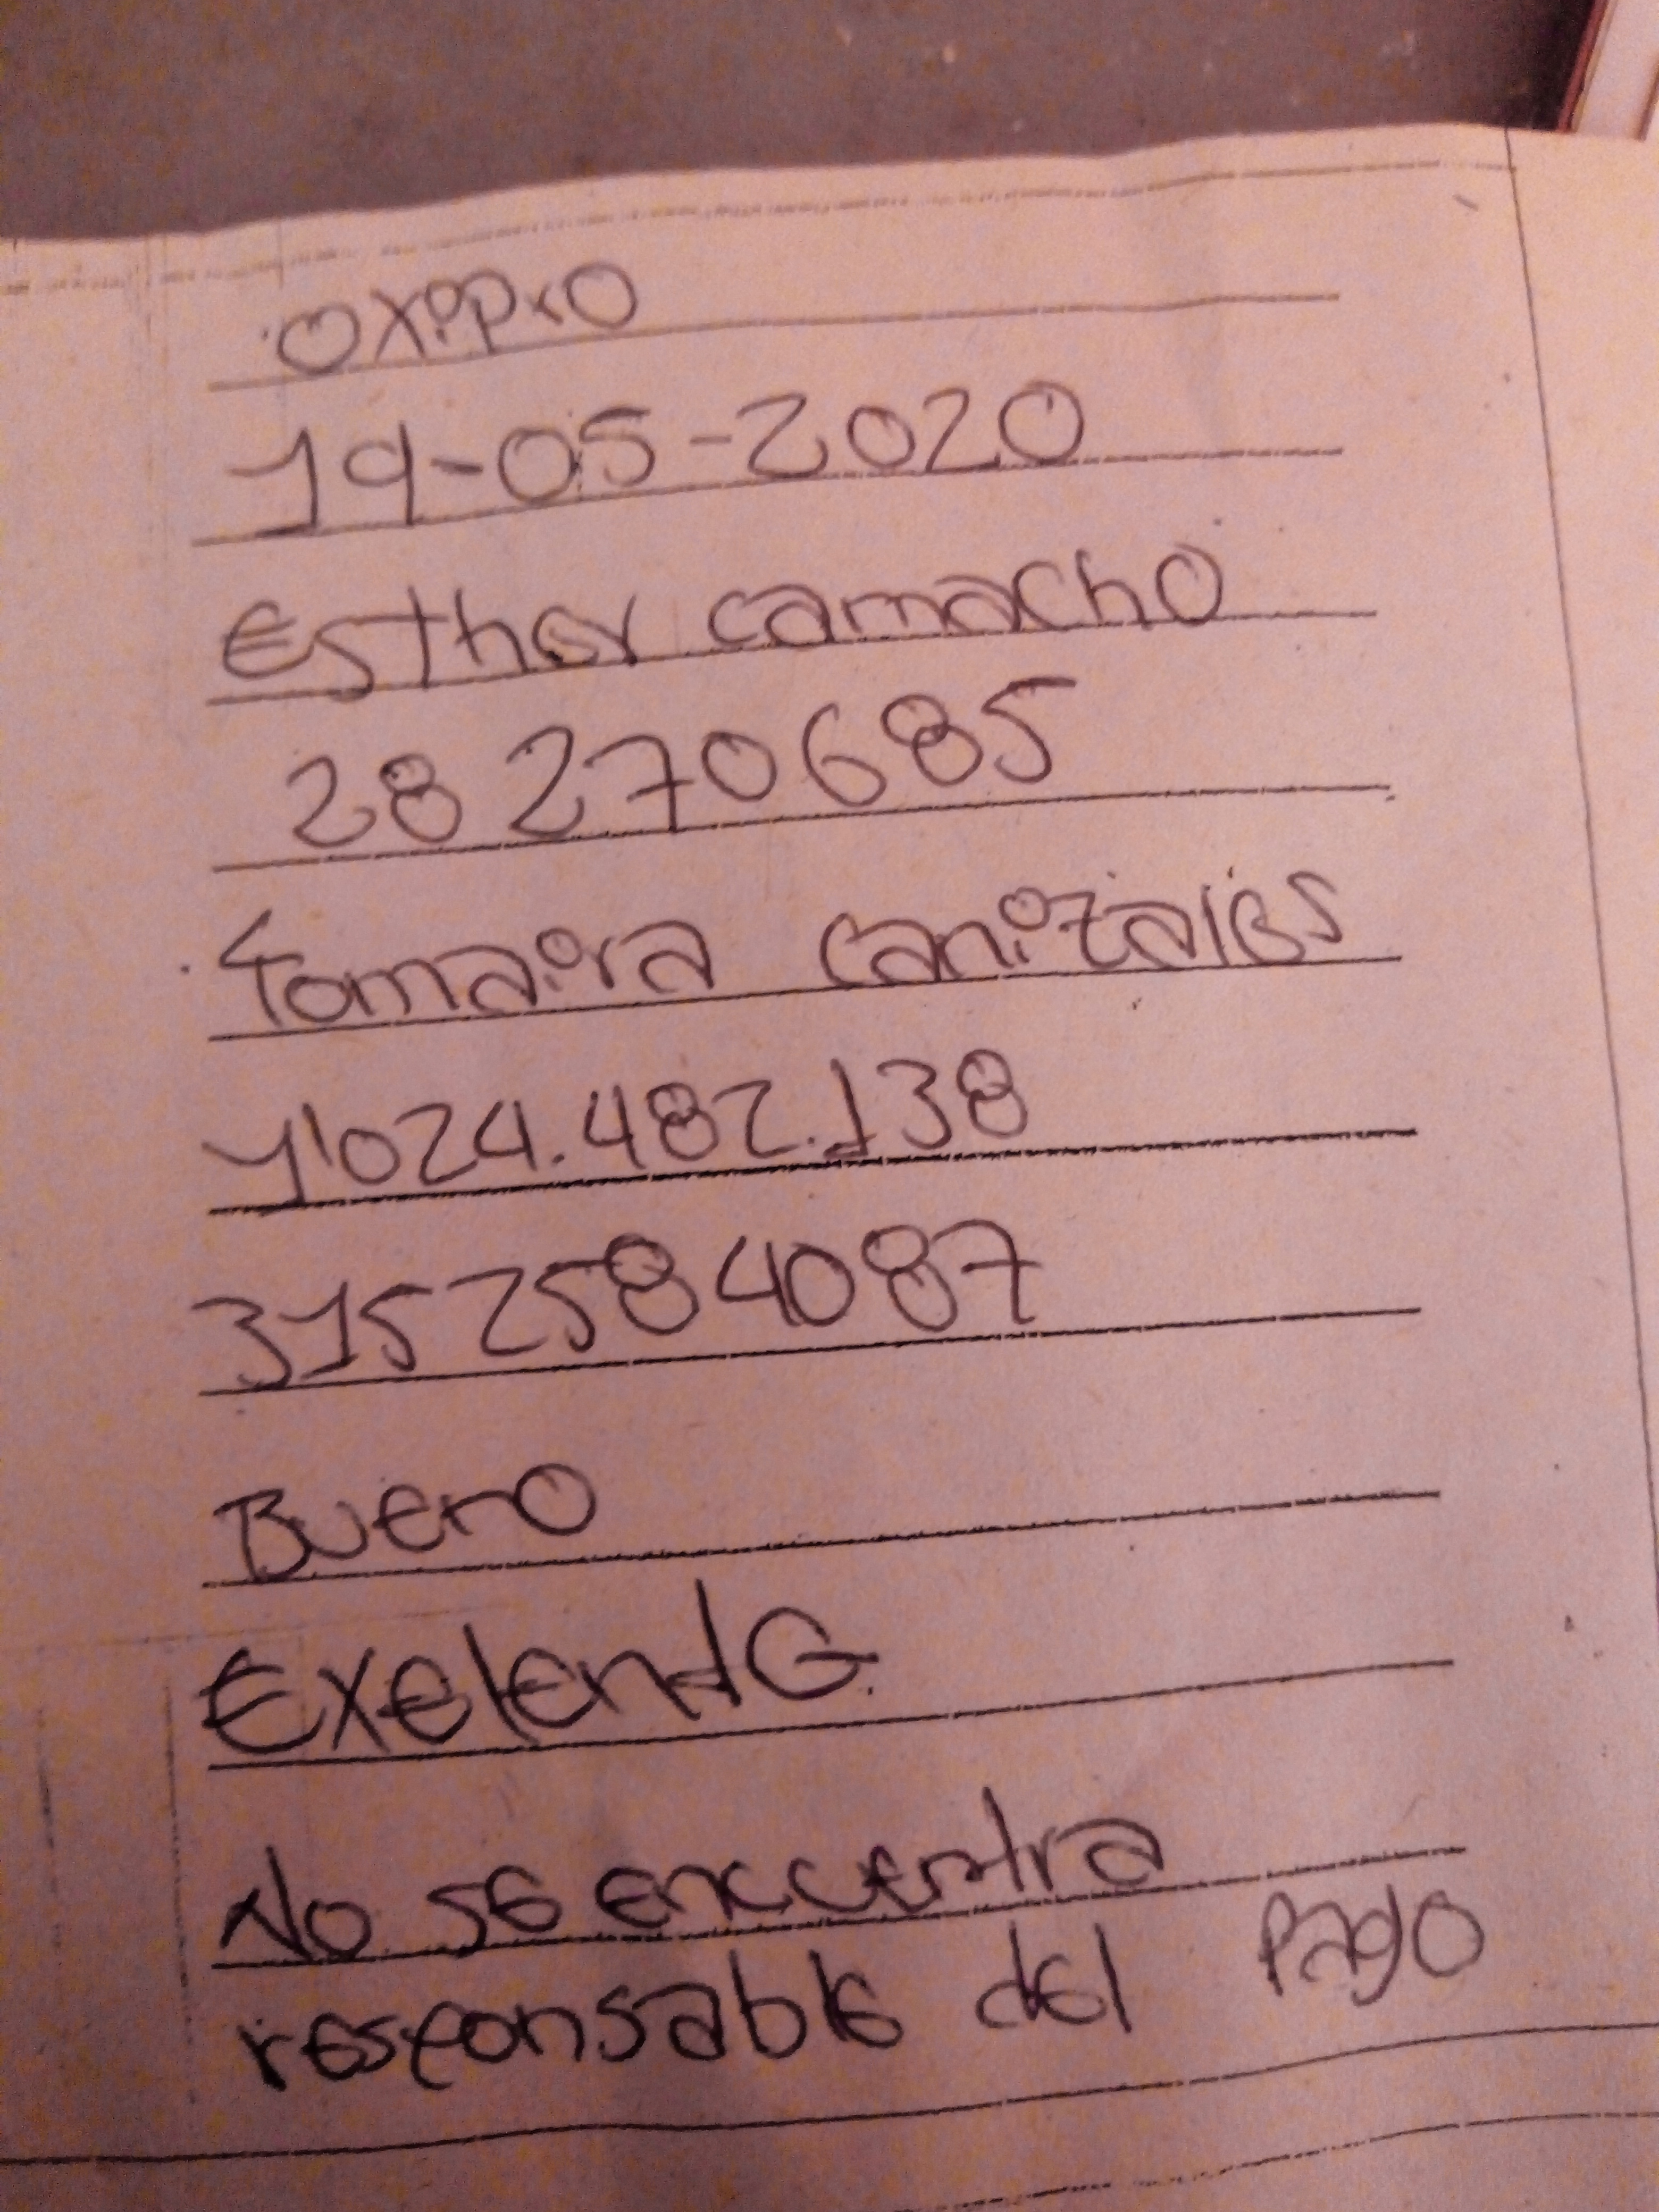 oxipro
19-05-2020
Esther camacho
28 270685
Yomaira canizales
1'024.482.138
315 2584087
Bueno
Exelente
No se encuentra
responsable del pago